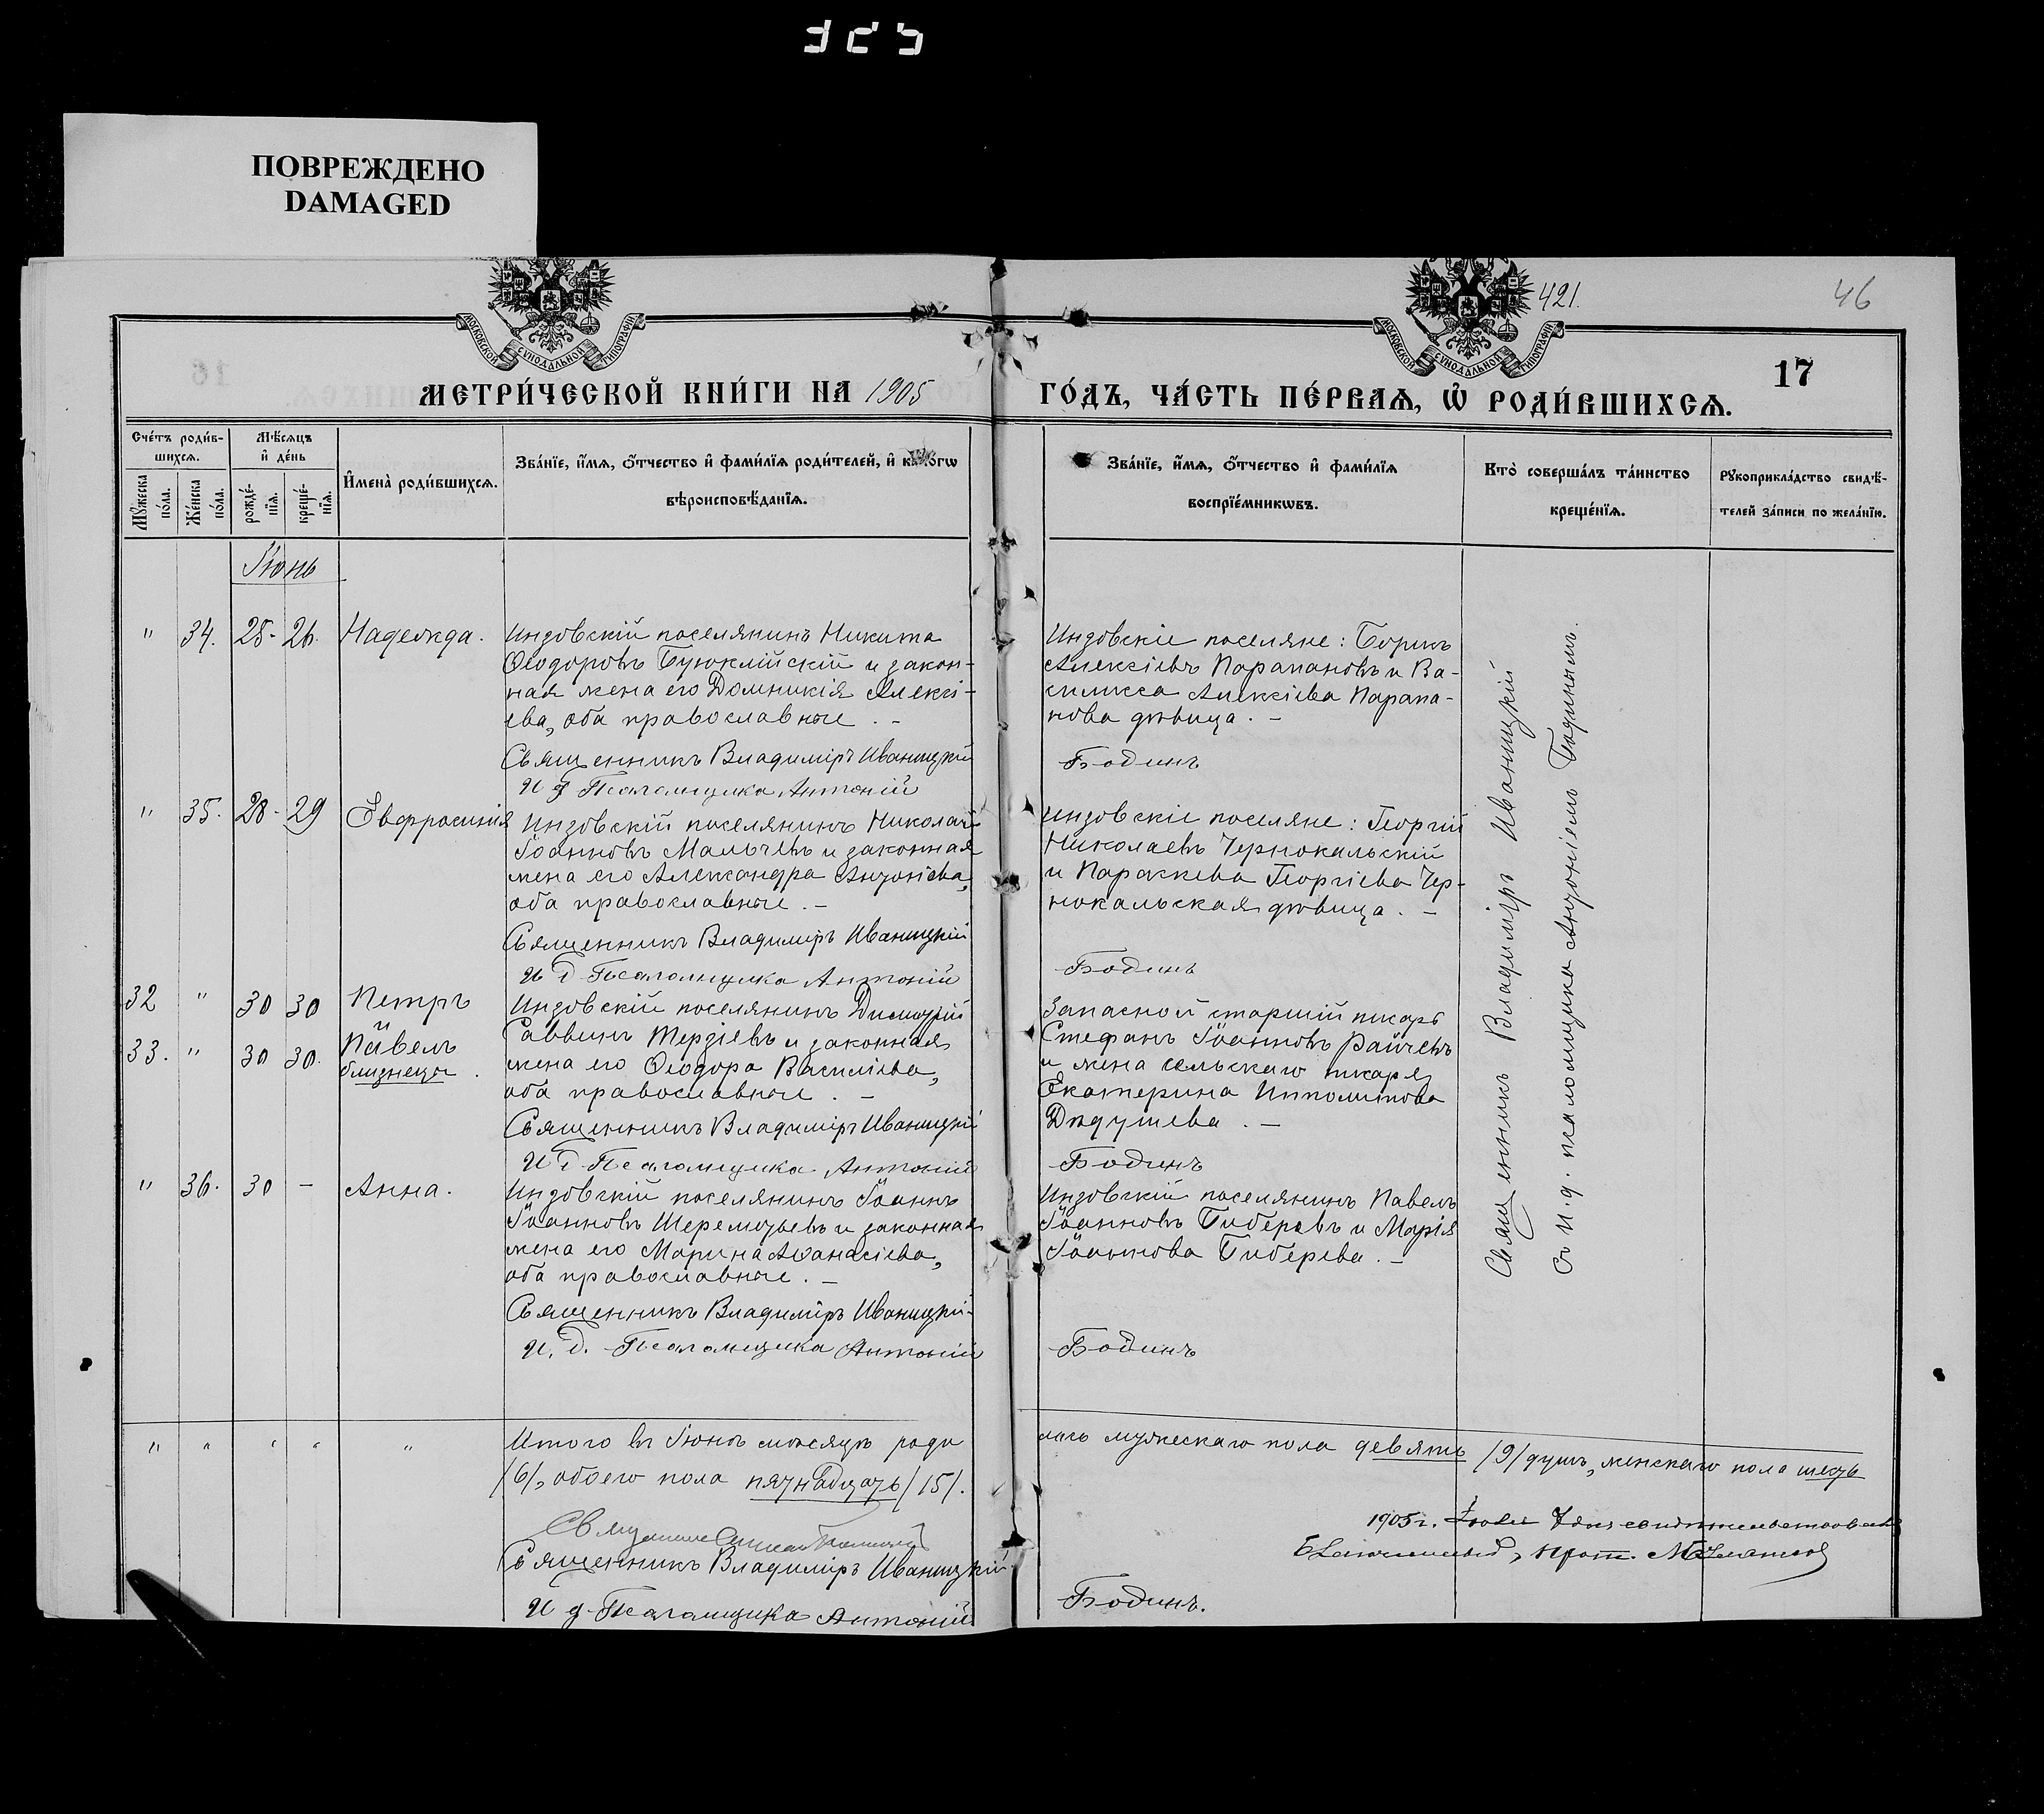 ПОВРЕЖДЕНО
DAMAGED
421.
46
МОСКОВСКОЙ СѴНОДАЛЬНОЙ ТИПОГРАФІИ
МОСКОВСКОЙ СѴНОДАЛЬНОЙ ТИПОГРАФІИ
17
МЕТРИ́ЧЕСКОЙ КНИ́ГИ НА 1905 ГО́ДЪ, ЧА́СТЬ ПЕ́РВАѦ, Ѡ҆ РОДИ́ВШИХСѦ.
Сче́тъ роди́в-
шихсѧ.
Мꙋ́жеска по́ла.
Же́нска по́ла.
Мѣ́сѧцъ
и҆ де́нь
рожде́-
нїѧ.
креще́-
нїѧ.
И҆мена̀ роди́вшихсѧ.
Зва́нїе, и҆́мѧ, о҆́тчество и҆ фами́лїѧ роди́телей, и҆
вѣроисповѣ́данїѧ.
Зва́нїе, и҆́мѧ, о҆́тчество и҆ фами́лїѧ
воспрїе́мникѡвъ.
Кто̀ соверша́лъ та́инство
креще́нїѧ.
Рꙋкоприкла́дство свидѣ́-
телей за́писи по жела́нїю.
Іюнь
" 34. 25- 26. Надежда.
Индовскій поселянинъ Никита
Ѳеодоровъ Буюклійскій и закон-
ная жена его Домникія Алексі-
ева, оба православные. -
Священникъ Владиміръ Иваницкій
И д Псаломщика Антоній
Индовскіе поселяне: Борисъ
Алексіевъ Парапановъ и Ва-
силисса Алексіева Парапа-
нова дѣвица. -
Бодинъ
" 35. 28- 29 Евфросинія
Индовскій поселянинъ Николай
Іоанновъ Мальчевъ и законная
жена его Александра Антоніева,
оба православные. -
Священникъ Владиміръ Иваницкій
И д Псаломщика Антоній
Индовскіе поселяне: Георгій
Николаевъ Чернокальскій
и Параскева Георгіева Чер-
нокальская дѣвица. -
Бодинъ
32 " 30 30 Петръ
33. " 30 30. и Павелъ
близнецы.
Индовскій поселянинъ Димитрій
Саввинъ Терзіевъ и законная
жена его Ѳеодора Василіева,
оба православные. -
Священникъ Владиміръ Иваницкій
И д Псаломщика Антоній
Запасной старшій писарь
Стефанъ Іоанновъ Райчевъ
и жена сельскаго писаря
Екатерина Ипполитова
Дѣдушева. -
Бодинъ
" 36. 30 - Анна.
Индовскій поселянинъ Іоаннъ
Іоанновъ Шереметьевъ и законная
жена его Марина Аѳанасіева,
оба православные. -
Священникъ Владиміръ Иваницкій
И. д. Псаломщика Антоній
Индовскій поселянинъ Павелъ
Іоанновъ Гиберевъ и Марія
Іоаннова Гиберева. -
Бодинъ
Священникъ Владиміръ Иваницкій
съ и. д. псаломщика Антоніемъ Бодинымъ.
" " " " "
Итого въ Іюнѣ мѣсяцѣ роди
лось мужескаго пола девять /9/ душъ, женскаго пола шесть
/6/, обоего пола пятнадцать /15/.
Священникъ Владиміръ Иваницкій
И д Псаломщика Антоній
Бодинъ.
1905 г. Іюля